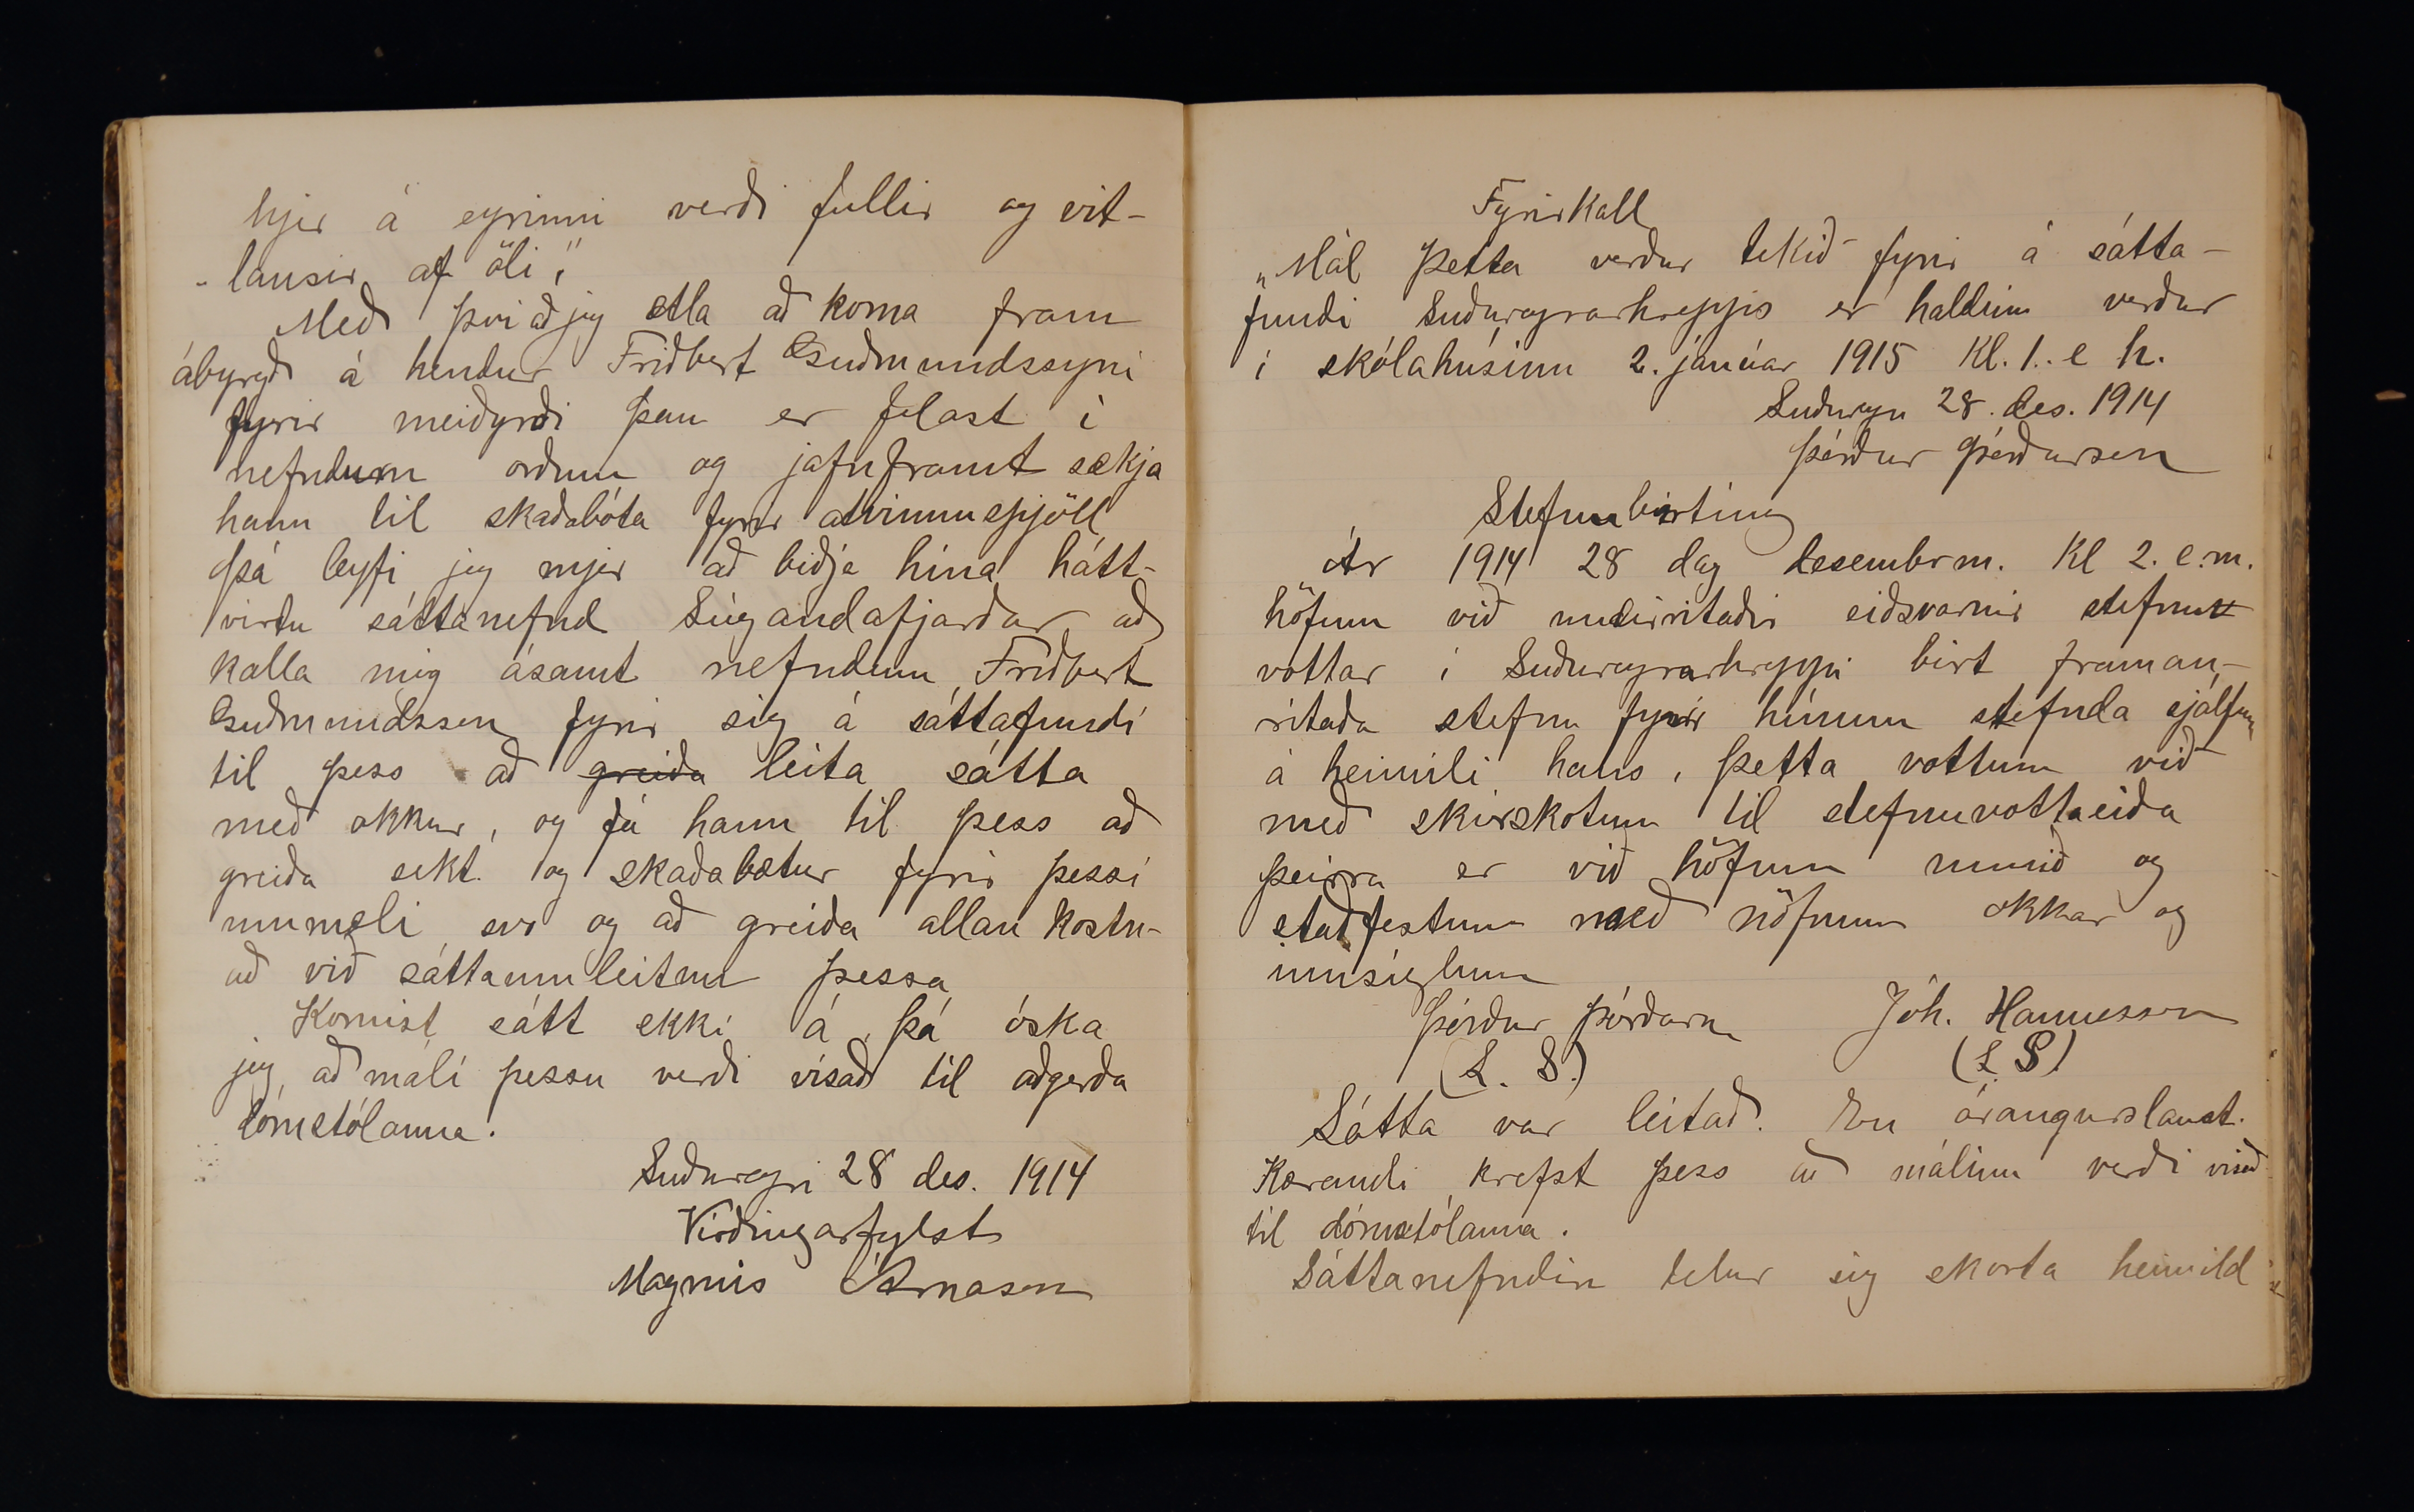 hjer á eyrinni verði fullir og vit-
-lausir af öli,"
Með því að jeg ætla að koma fram
ábyrgð á hendur Friðbert Guðmundssyni
fyrir meiðyrði þau er felast í
nefndum orðum og jafnframt sækja
hann til skaðabóta fyrir atvinnuspjöll
þá leyfi jeg mjer að biðja hina hátt-
virtu sáttanefnd Súgandafjarðar að
kalla mig ásamt nefndum Friðbert
Guðmundsson fyrir sig á sáttafundi
til þess að greiða leita sátta
með okkur, og fá hann til þess að
greiða sekt og skaðabætur fyrir þessi
ummæli svo og að greiða allan kostn-
að við sáttaumleitun þessa
Komist sátt ekki á þá óska
jeg, að máli þessu verði vísað til aðgerða
dómstólanna.
Suðureyri 28 des. 1914
Virðingarfylst
Magnús Árnason
Fyrirkall
„Mál þetta verður tekið fyrir á sátta-
fundi Suðureyrarhrepps er haldinn verður
í skólahúsinu 2. janúar 1915 Kl. 1. e h.
Suðureyri 28. des. 1914
Þórður Þórðarson
Stefnubirting
Ár 1914 28 dag desemberm. Kl 2. e.m.
höfum við undirritaðir eiðsvarnir stefnu
vottar í Suðureyrarhreppi birt framan-
ritaða stefnu fyrir hinum stefnda sjálfum
á heimili hans, þetta vottum við
með skírskotun til stefnuvottaeiða
þeirra er við höfum unnið og
staðfestum með nöfnum okkar og
innsiglum
Þórður Þórðarson Jóh. Hannesson
(L. S.) (L S)
Sátta var leitað. En árangurslaust.
Kærandi krefst þess að málinu verði vísað
til dómstólanna.
Sáttanefndin telur sig skorta heimild